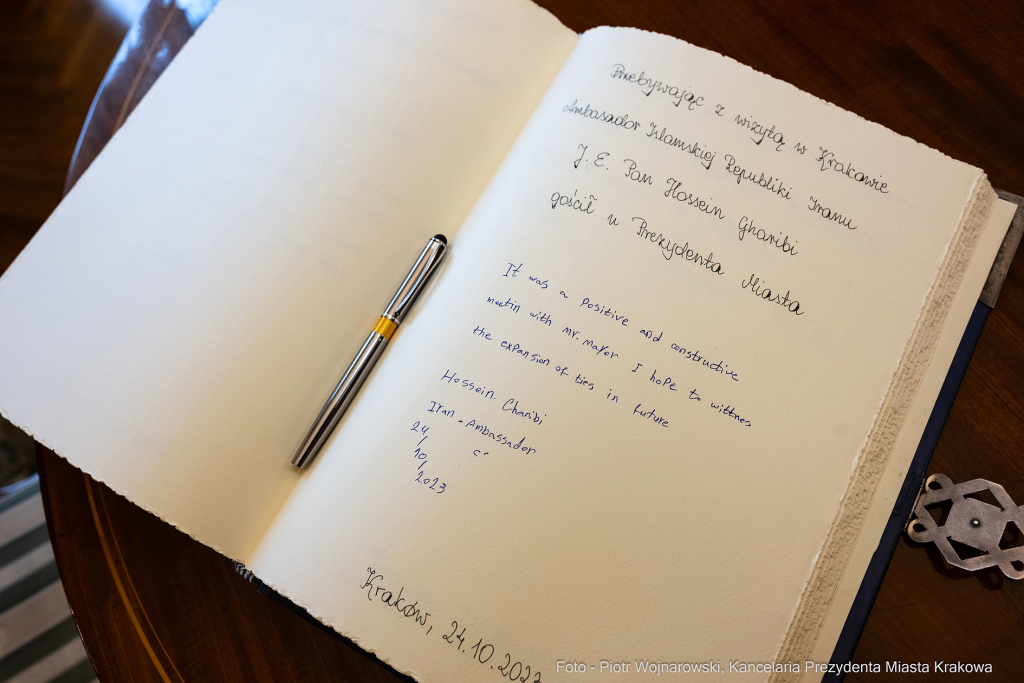 Przebywając z wizytą w Krakowie
Ambasador Islamskiej Republiki Iranu
J. E. Pan Hossein Gharibi
gościł u Prezydenta Miasta
It was a positive and constructive
meetin with mr. mayor I hope to wittnes
the expansion of ties in future
Hossein. Gharibi
Iran - Ambassador
24/
10/
2023
Kraków, 24.10.2023
Foto - Piotr Wojnarowski, Kancelaria Prezydenta Miasta Krakowa